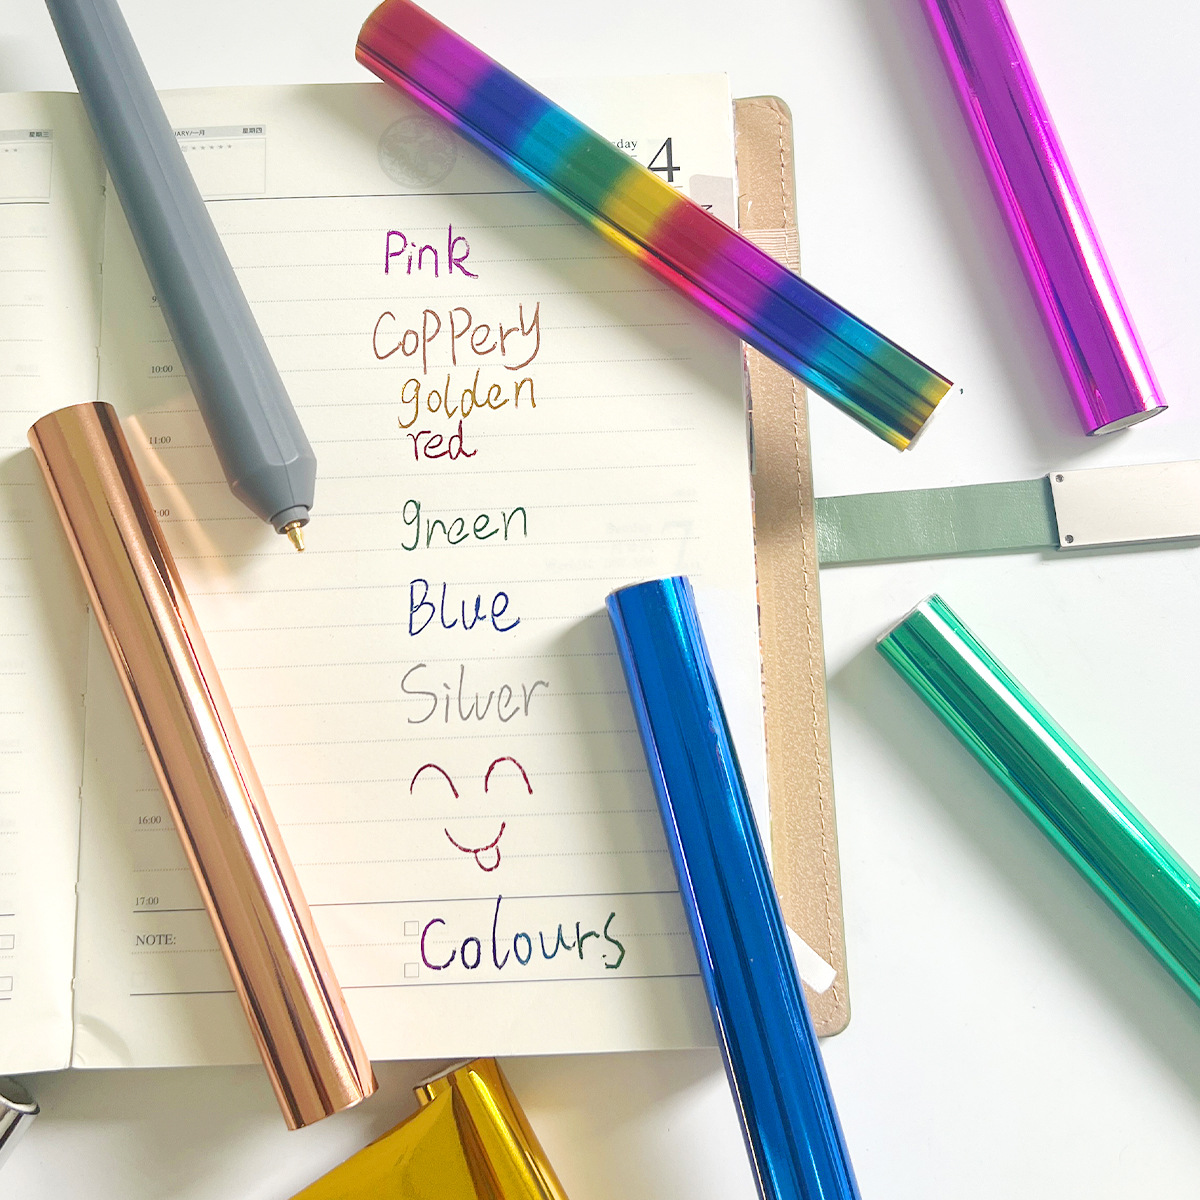 星期三
ARY/一月 星期四
day
4
Pink
10:00
Coppery
golden
11:00
red
green
Blue
Silver
16:00
17:00
Colours
NOTE: